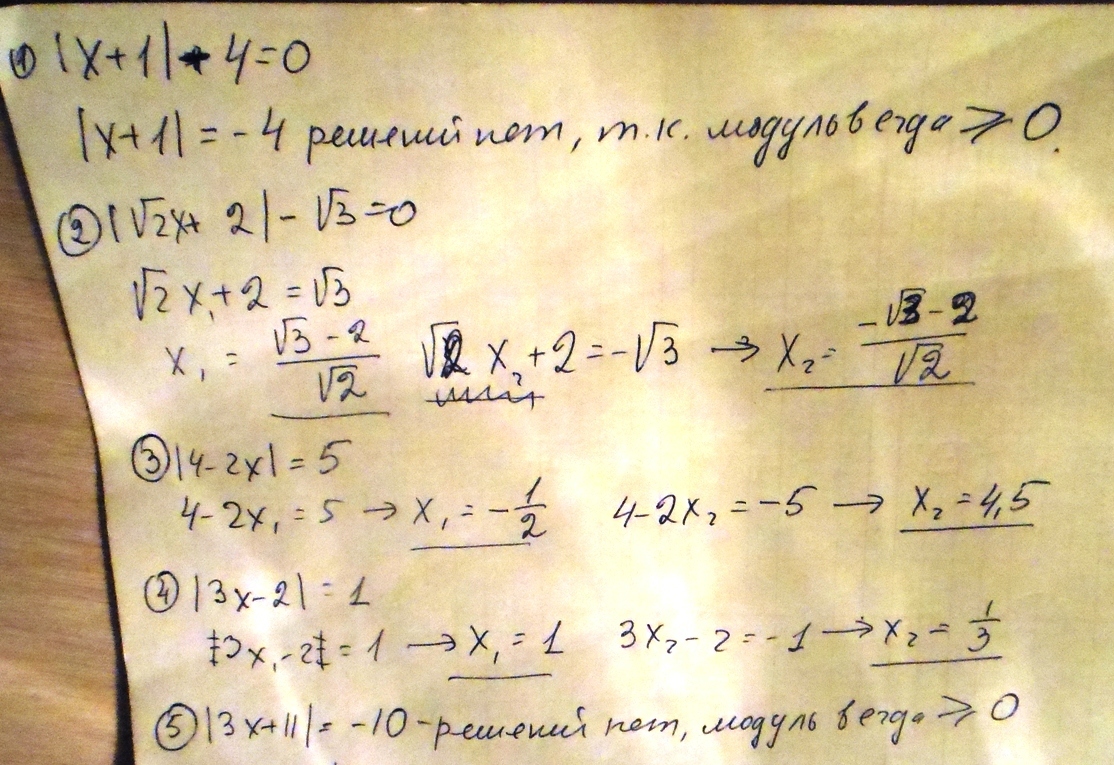 ① |x+1|+4=0
|x+1| = -4 решений нет, т.к. модуль всегда ≥ 0.
② |√2x+ 2| - √3=0
√2 x₁+2 = √3
x₁ = (√3 - 2)/√2 √2 x₂+2=-√3 → x₂= (-√3 - 2)/√2
③ |4-2x| = 5
4-2x₁ = 5 → x₁ = -1/2 4-2x₂ = -5 → x₂ = 4,5
④ |3x-2| = 1
3x₁-2 = 1 → x₁ = 1 3x₂-2 = -1 → x₂ = 1/3
⑤ |3x+11| = -10 - решений нет, модуль всегда ≥ 0